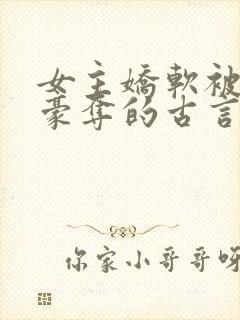 女主嬌軟被
豪奪的古言
你家小哥哥呀